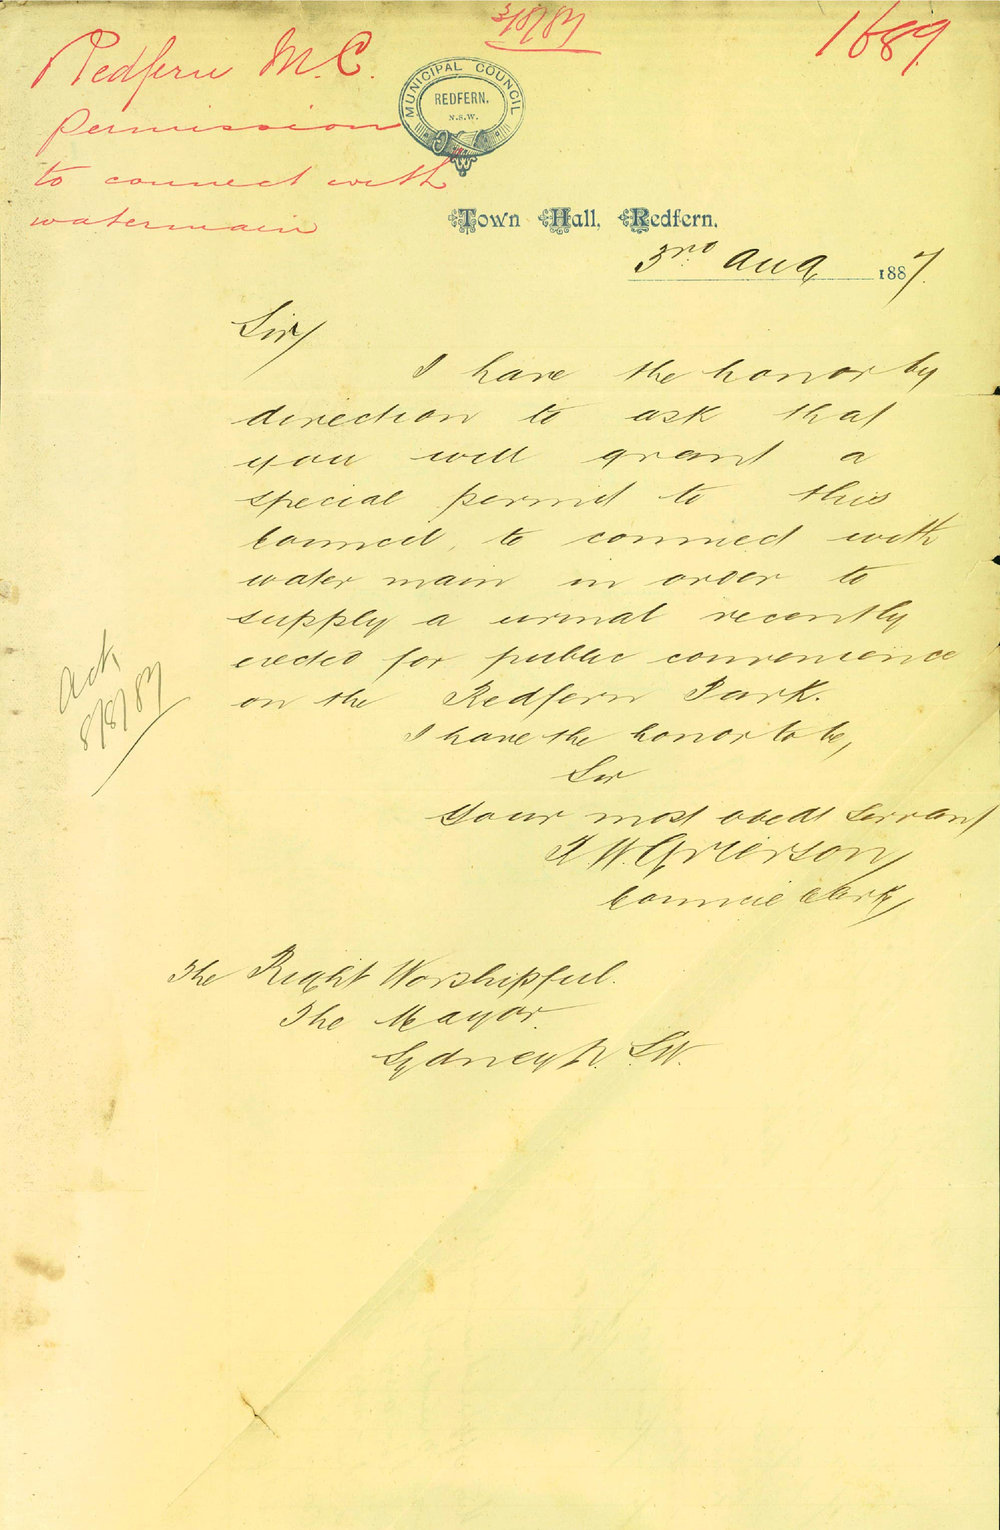 3/8/87
1689
Redfern M.C.
Permission
to connect with
watermain
MUNICIPAL COUNCIL
REDFERN.
N.S.W.
Town Hall, Redfern.
3rd Aug 1887
Sir/
I have the honor by
direction to ask that
you will grant a
special permit to this
Council, to connect with
water main in order to
supply a urinal recently
erected for public convenience
on the Redfern Park.
I have the honor to be,
Sir
Your most obedt Servant
T. W. Grierson
Council Clerk
Ack
8/8/87
The Right Worshipful.
The Mayor.
Sydney N.S.W.